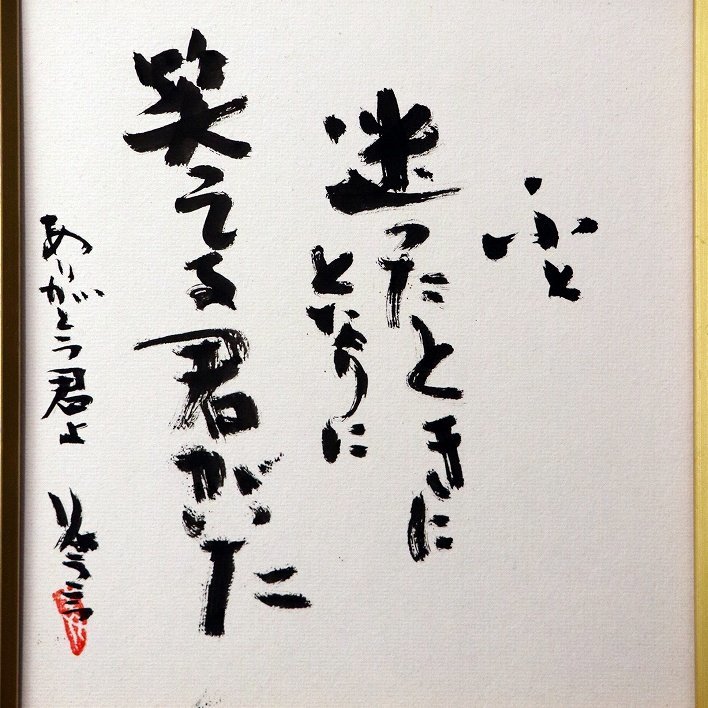 ふと
迷ったときに
となりに
笑える君がいた
ありがとう君よ